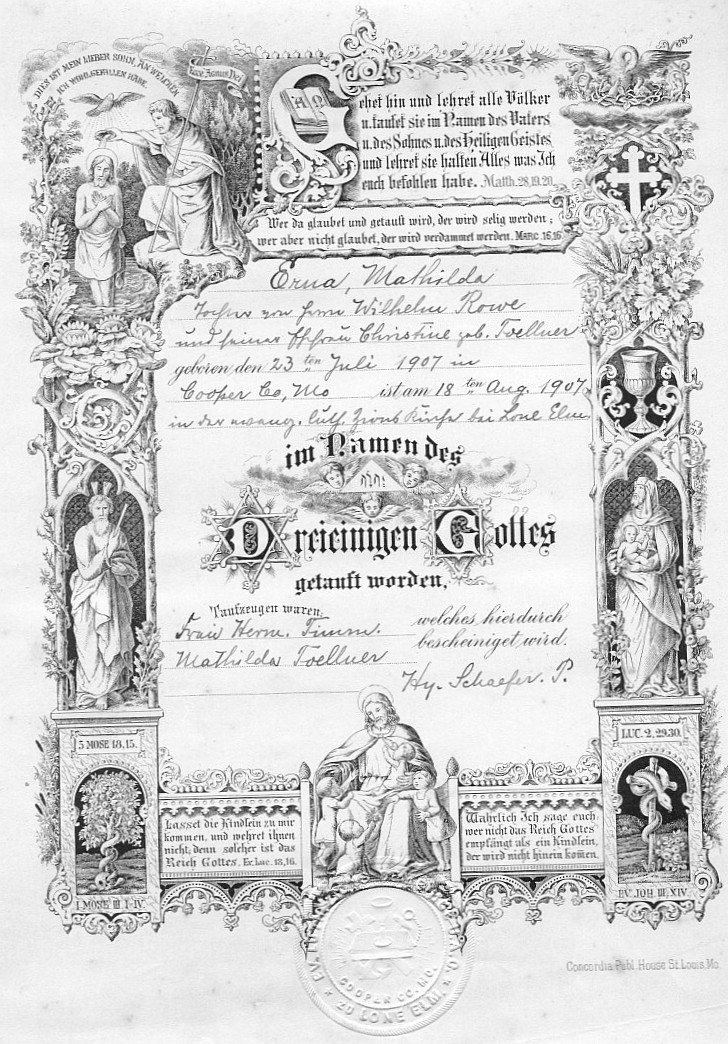 DIES IST MEIN LIEBER SOHN, AN WELCHEM
ICH WOHLGEFALLEN HABE.
Ecce Agnus Dei
A Ω
Gehet hin und lehret alle Völker
u. taufet sie im Namen des Vaters
u. des Sohnes u. des Heiligen Geistes
und lehret sie halten Alles was Ich
euch befohlen habe. Matth. 28,19.20.
Wer da glaubet und getauft wird, der wird selig werden;
wer aber nicht glaubet, der wird verdammet werden. MARC. 16,16
Erna, Mathilda
Tochter von Herrn Wilhelm Rowe
und seiner Ehefrau Christine geb. Toellner
geboren den 23ten Juli 1907 in
Cooper Co, Mo ist am 18ten Aug. 1907
in der evang. luth. Zions Kirche bei Lone Elm
im Namen des
Dreieinigen Gottes
getauft worden,
Taufzeugen waren:
Frau Herm. Timm.
Mathilda Toellner
welches hierdurch
bescheiniget wird.
Hy. Schaefer. P.
5 MOSE 18,15.
LUC. 2, 29.30.
Lasset die Kindlein zu mir
kommen, und wehret ihnen
nicht; denn solcher ist das
Reich Gottes. Ev. Luc. 18,16.
Wahrlich Ich sage euch:
wer nicht das Reich Gottes
empfängt als ein Kindlein,
der wird nicht hinein kom̄en.
1. MOSE III, 1-IV.
EV. JOH. III, XIV.
COOPER CO. MO.
ZU LONE ELM
Concordia Publ. House St. Louis, Mo.